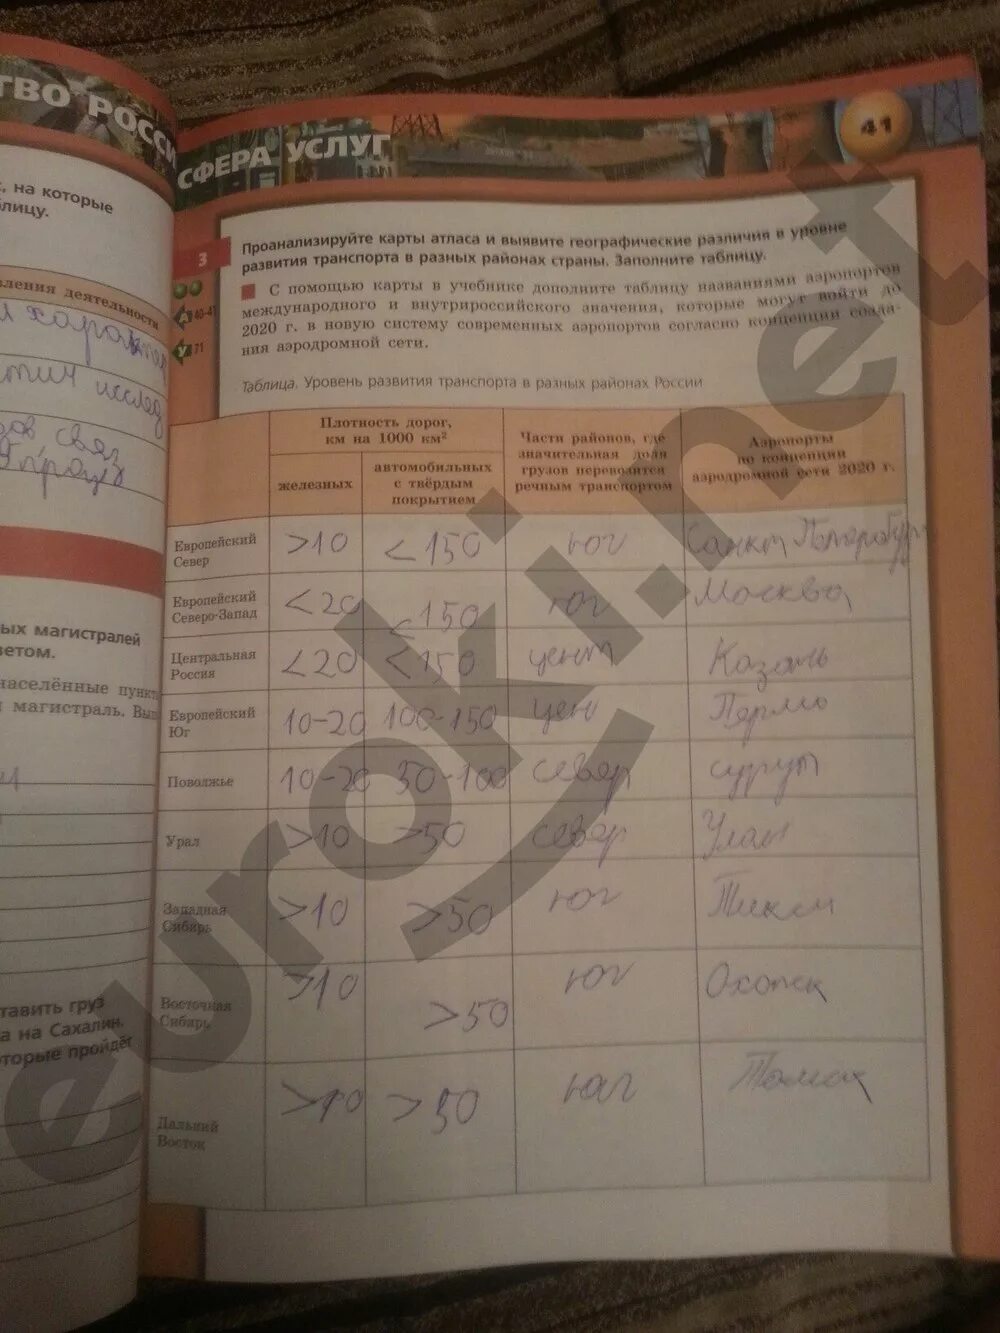 ТВО РОССИ
, на которые
блицу.
вления деятельности
ых магистралей
ветом.
населённые пункт
магистраль. Вып
ставить груз
а на Сахалин.
оторые пройдёт
СФЕРА УСЛУГ
41
3
Проанализируйте карты атласа и выявите географические различия в уровне
развития транспорта в разных районах страны. Заполните таблицу.
А 40-41
У 71
С помощью карты в учебнике дополните таблицу названиями аэропортов
международного и внутрироссийского значения, которые могут войти до
2020 г. в новую систему современных аэропортов согласно концепции созда-
ния аэродромной сети.
Таблица. Уровень развития транспорта в разных районах России
Плотность дорог,
км на 1000 км²
железных
автомобильных
с твёрдым
покрытием
Части районов, где
значительная доля
грузов перевозится
речным транспортом
Аэропорты
по концепции
аэродромной сети 2020 г.
Европейский
Север
>10 <150 юг Санкт Петербург
Европейский
Северо-Запад
<20 <150 юг Москва
Центральная
Россия
<20 <150 цент Казань
Европейский
Юг
10-20 100-150 цен
Поволжье
10-20 50-100 север сургут
Урал
>10 >50 север
Западная
Сибирь
>10 >50 юг Тикси
Восточная
Сибирь
>10 >50 юг Охотск
Дальний
Восток
>10 >50 юг
euroki.net